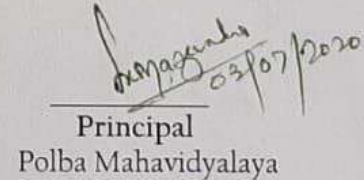 03/07/2020
Principal
Polba Mahavidyalaya